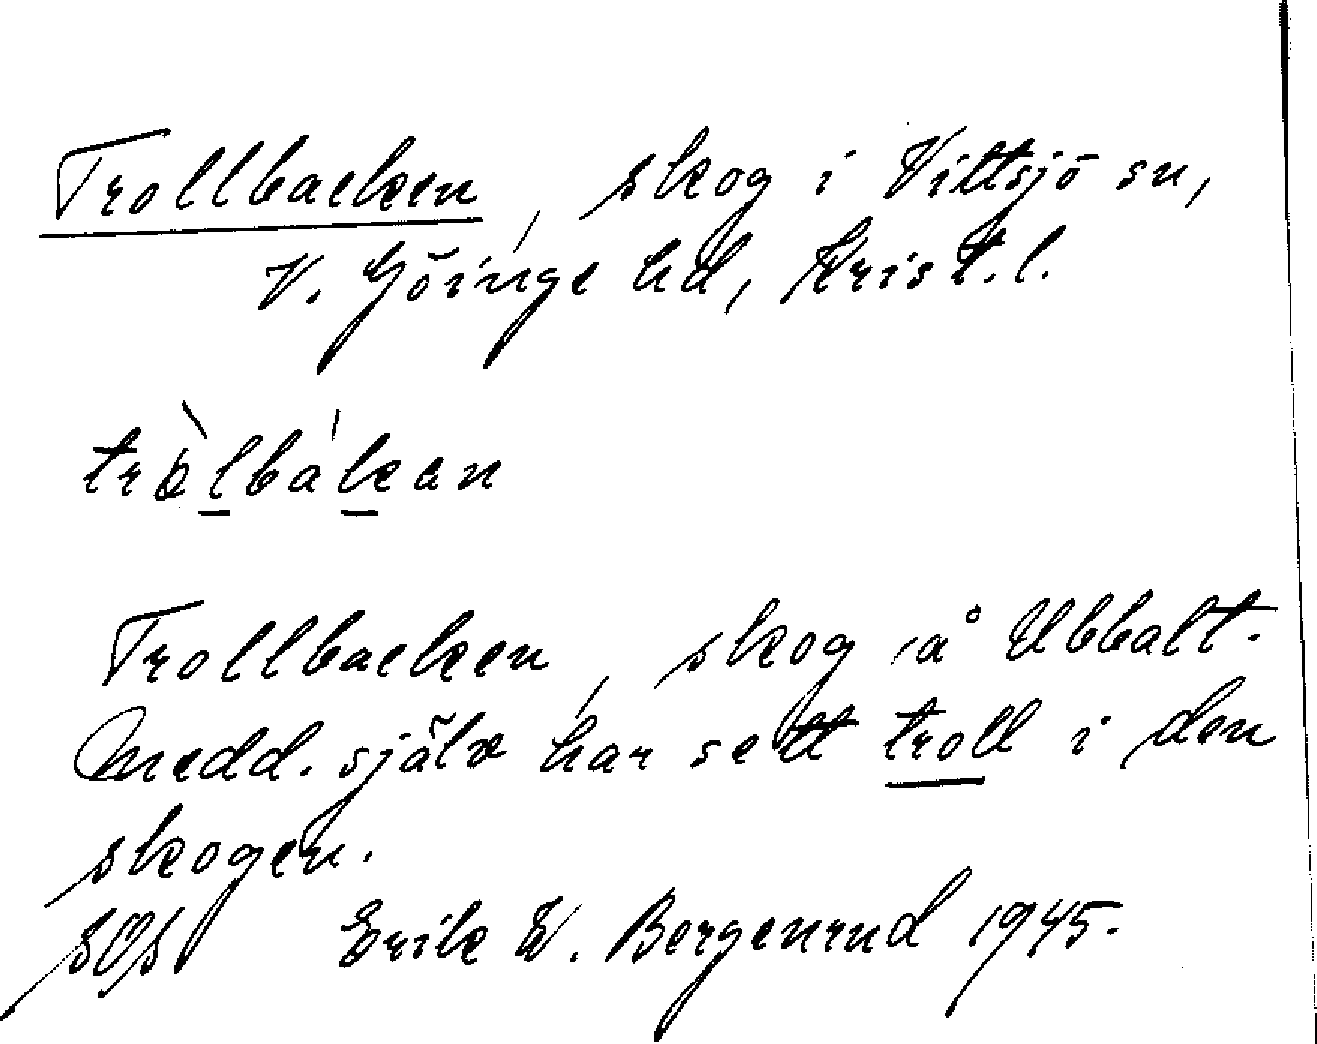 Trollbacken, skog i Vittsjö sn,
V. Göinge hd, Krist. l.
tròlbákan
Trollbacken, skog å Ubbalt.
Medd. själv har sett troll i den
skogen.
Erik W. Bergenrud 1945.